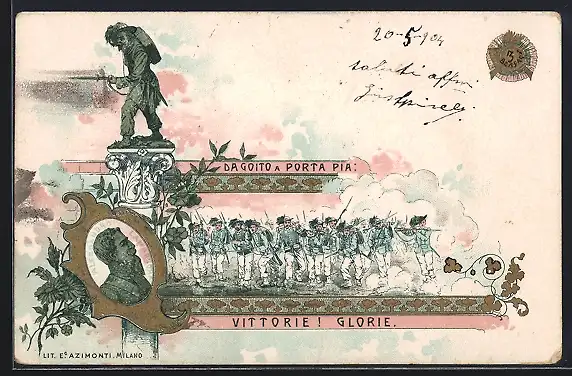 20-5-904
saluti affmi
DA GOITO A PORTA PIA:
VITTORIE! GLORIE.
LIT. E. AZIMONTI. MILANO